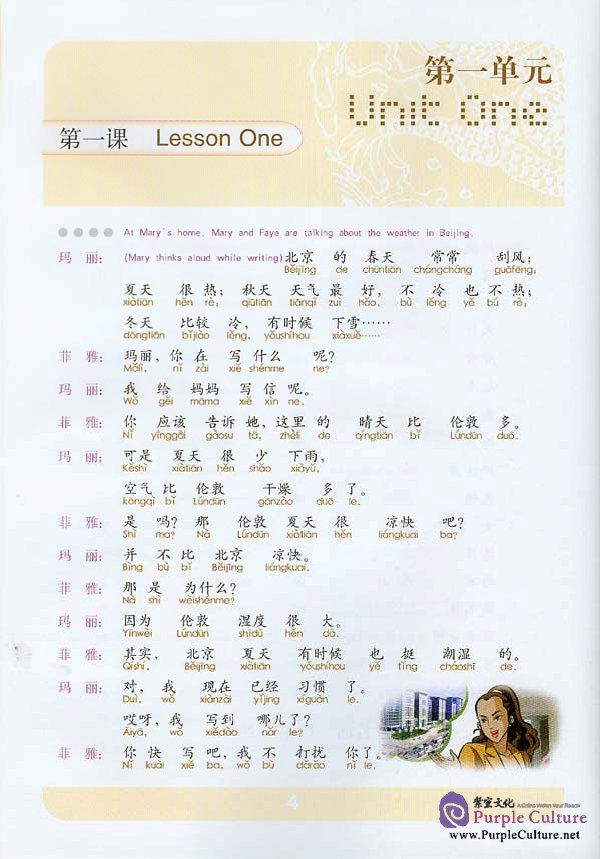 第一单元
Unit One
第一课 Lesson One
At Mary's home, Mary and Faye are talking about the weather in Beijing.
玛丽: (Mary thinks aloud while writing)北京 的 春天 常常 刮风;
Běijīng de chūntiān chángcháng guāfēng;
夏天 很 热; 秋天 天气 最 好, 不 冷 也 不 热;
xiàtiān hěn rè; qiūtiān tiānqì zuì hǎo, bù lěng yě bú rè;
冬天 比较 冷, 有时候 下雪……
dōngtiān bǐjiào lěng, yǒushíhou xiàxuě……
菲雅: 玛丽, 你 在 写 什么 呢?
Mǎlì, nǐ zài xiě shénme ne?
玛丽: 我 给 妈妈 写信 呢。
Wǒ gěi māma xiě xìn ne.
菲雅: 你 应该 告诉 她, 这里 的 晴天 比 伦敦 多。
Nǐ yīnggāi gàosu tā, zhèli de qíngtiān bǐ Lúndūn duō.
玛丽: 可是 夏天 很 少 下雨,
Kěshì xiàtiān hěn shǎo xiàyǔ,
空气 比 伦敦 干燥 多 了。
kōngqì bǐ Lúndūn gānzào duō le.
菲雅: 是 吗? 那 伦敦 夏天 很 凉快 吧?
Shì ma? Nà Lúndūn xiàtiān hěn liángkuai ba?
玛丽: 并 不 比 北京 凉快。
Bìng bù bǐ Běijīng liángkuai.
菲雅: 那 是 为什么?
Nà shì wèishénme?
玛丽: 因为 伦敦 湿度 很 大。
Yīnwèi Lúndūn shīdù hěn dà.
菲雅: 其实, 北京 夏天 有时候 也 挺 潮湿 的。
Qíshí, Běijīng xiàtiān yǒushíhou yě tǐng cháoshī de.
玛丽: 对, 我 现在 已经 习惯 了。
Duì, wǒ xiànzài yǐjing xíguàn le.
哎呀, 我 写到 哪儿了?
Āiyā, wǒ xiědào nǎr le?
菲雅: 你 快 写 吧, 我 不 打扰 你 了。
Nǐ kuài xiě ba, wǒ bù dǎrǎo nǐ le.
4
紫宣文化 A China Within Your Reach
Purple Culture
www.PurpleCulture.net